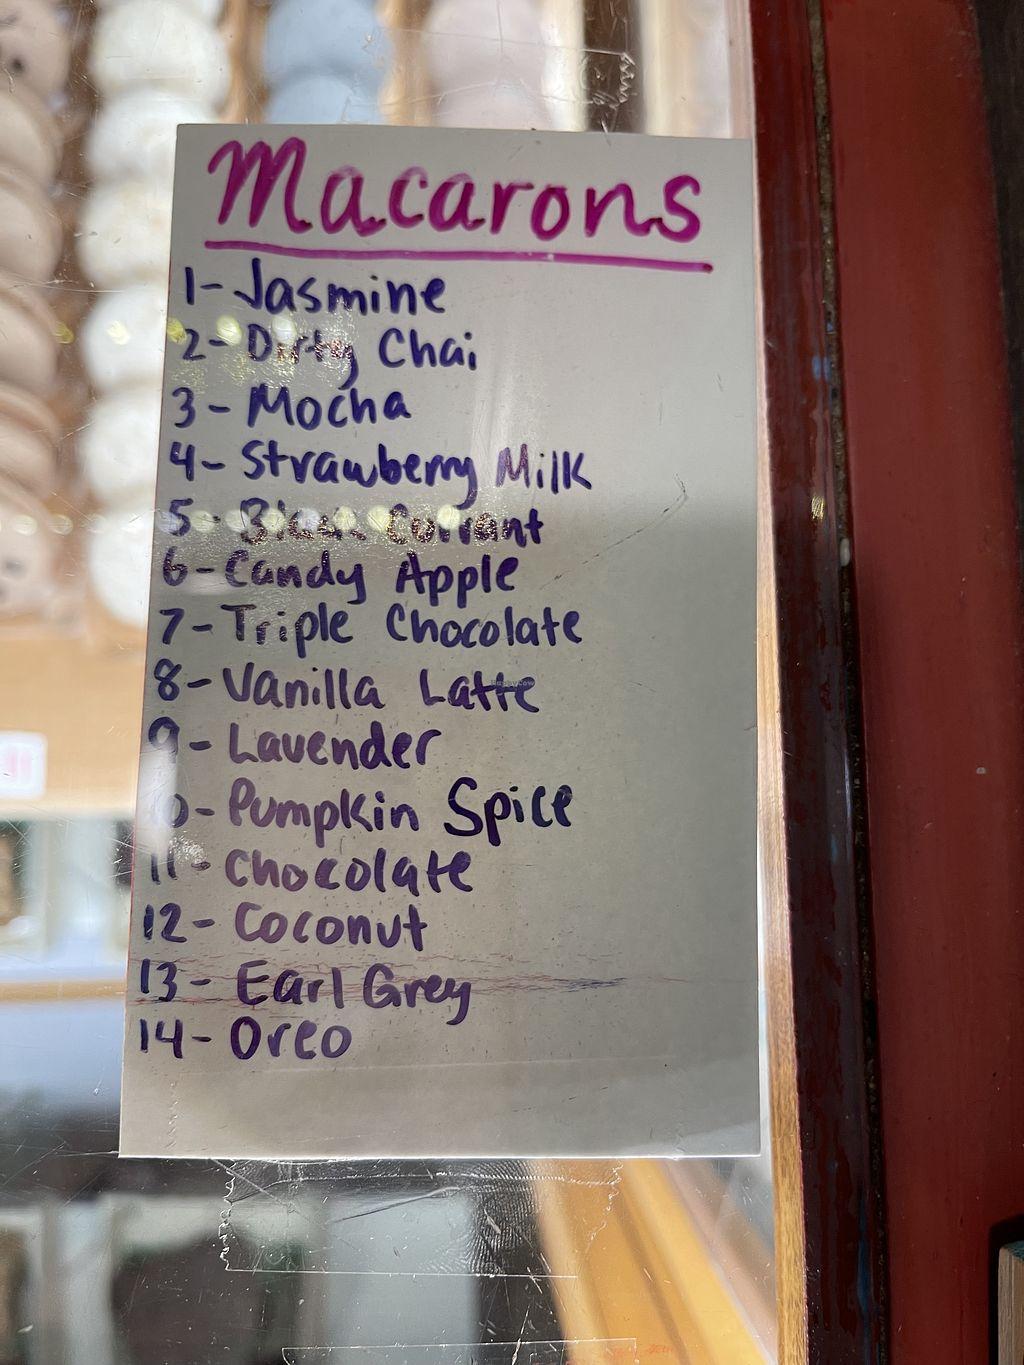 Macarons
1- Jasmine
2- Dirty Chai
3- Mocha
4- Strawberry Milk
5- Black Currant
6- Candy Apple
7- Triple Chocolate
8- Vanilla Latte
HappyCow
9- Lavender
10- Pumpkin Spice
11- Chocolate
12- Coconut
13- Earl Grey
14- Oreo